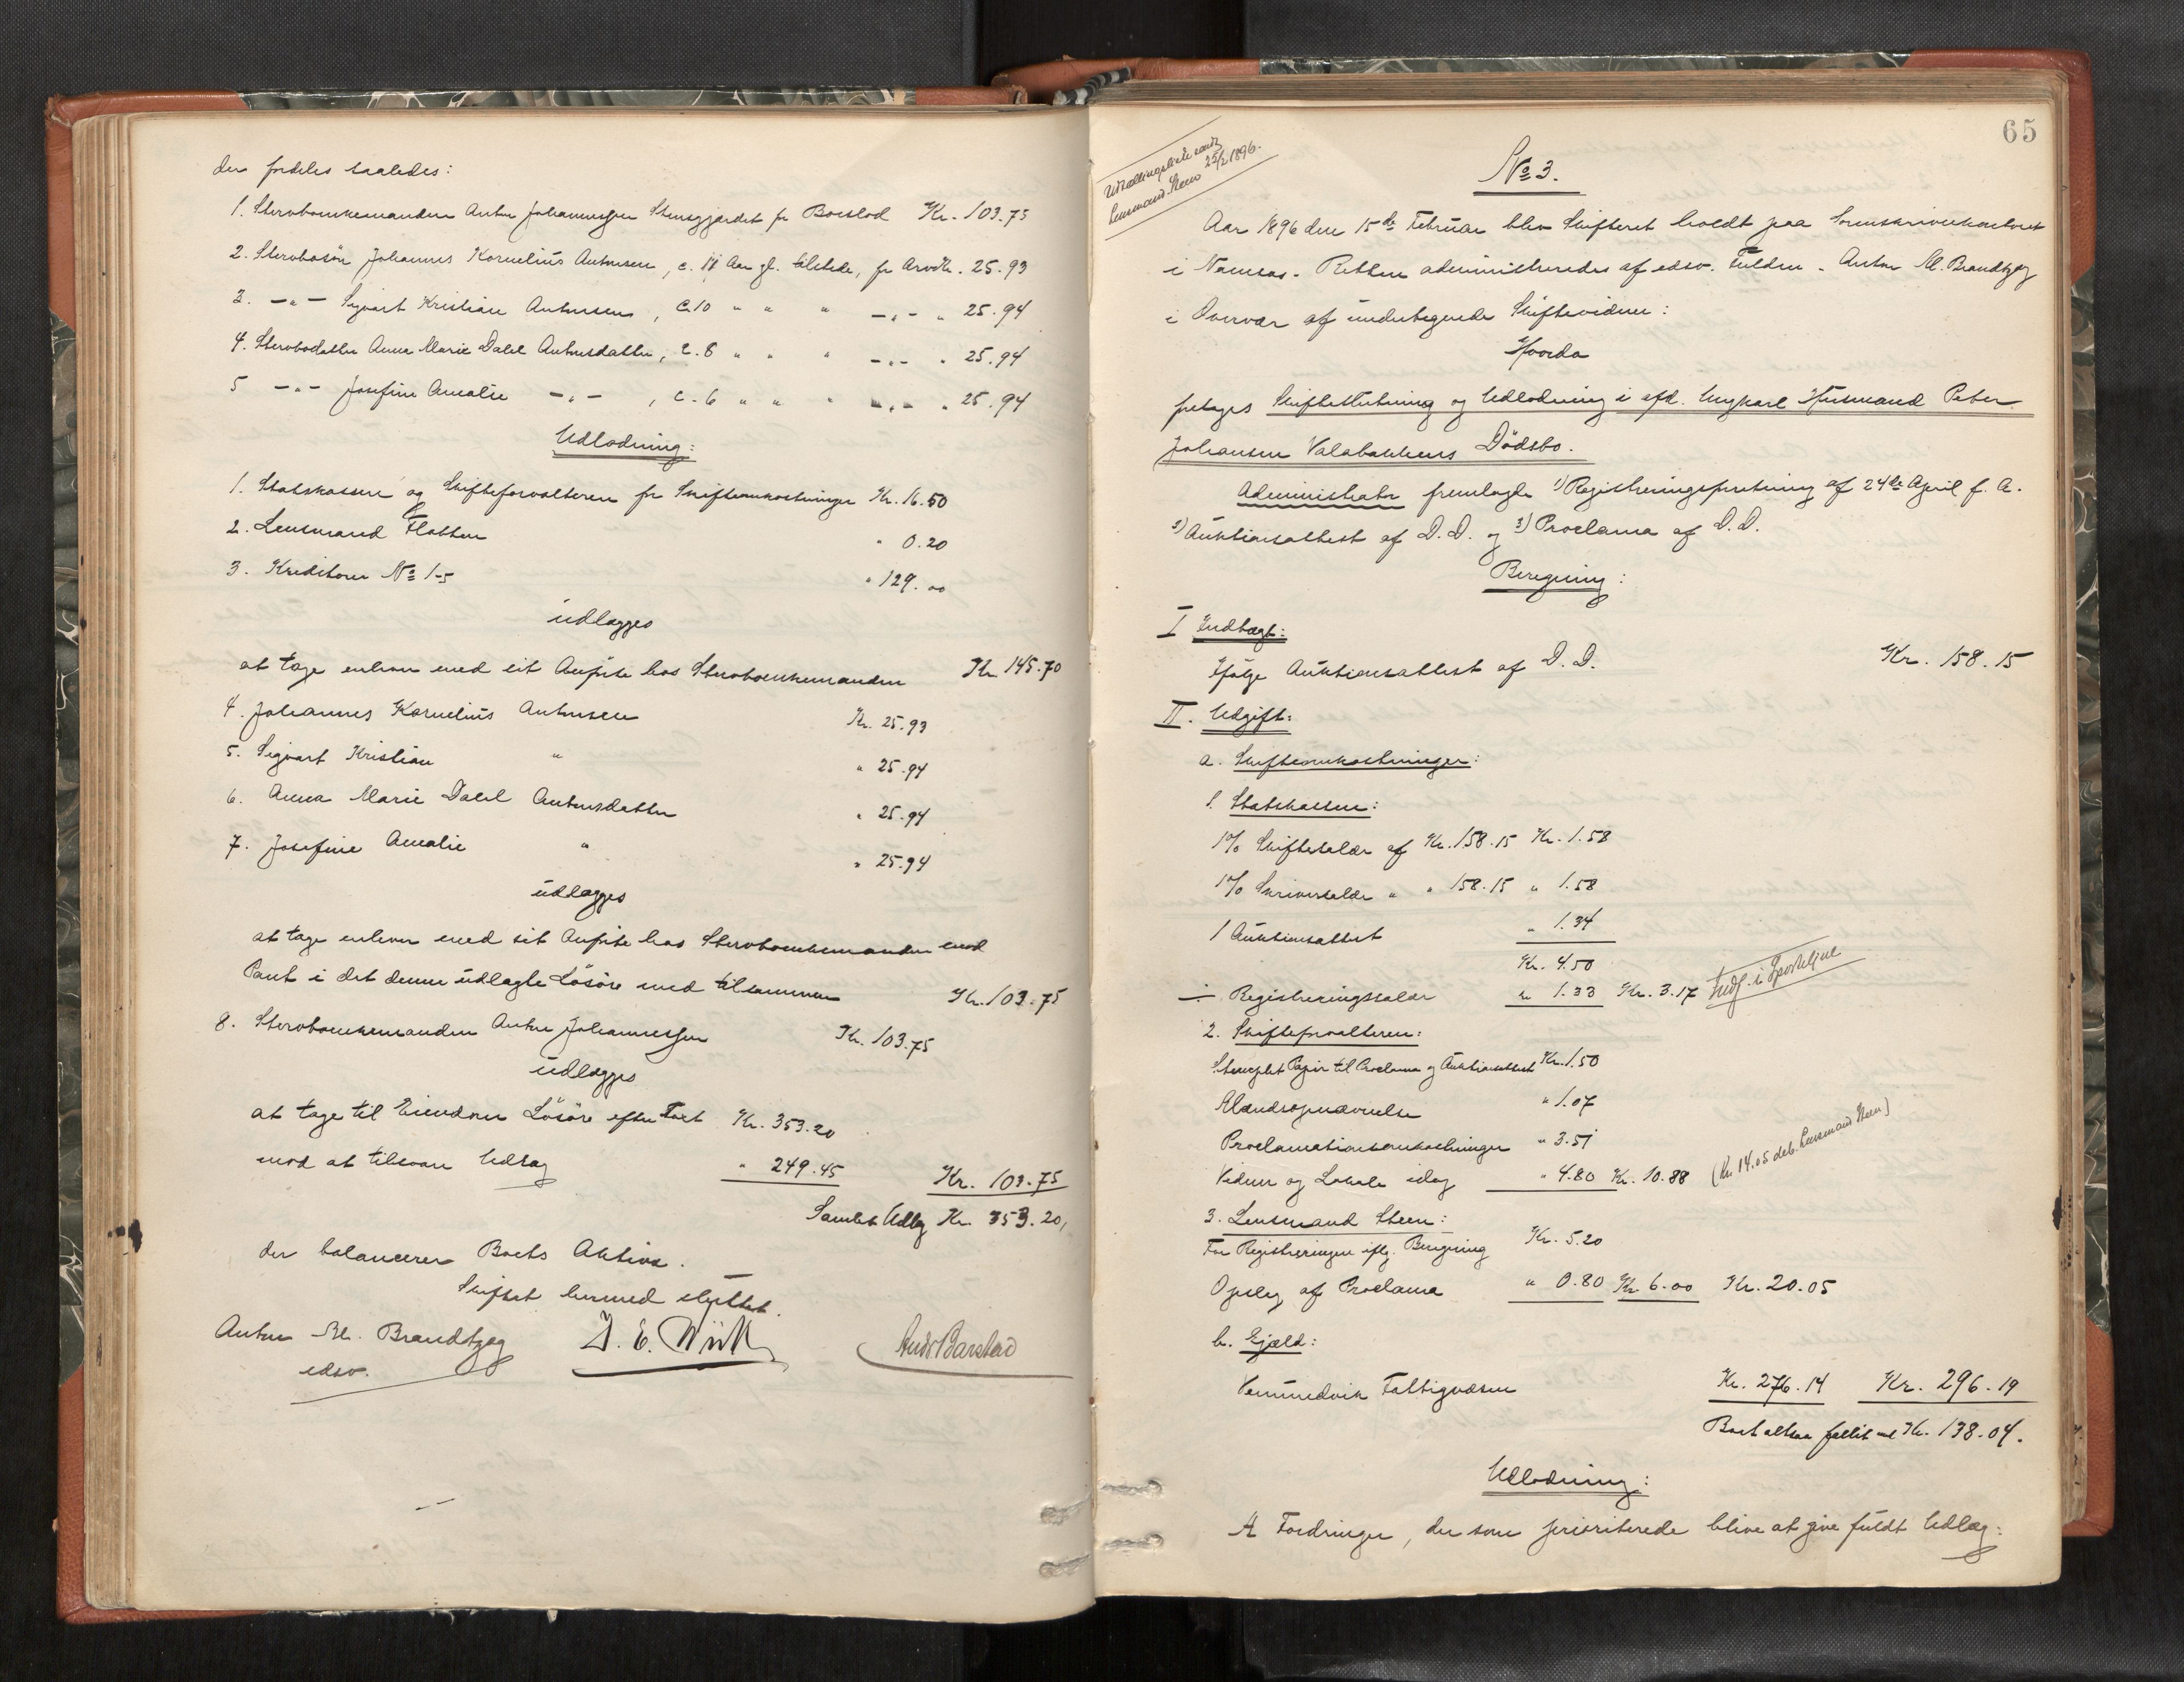 der fordeles saaledes:
1. Sterboenkemanden Anton Johannessen Stensgjærdet for Boeslod Kr. 103.75
2. Sterbosön Johannes Kornelius Antonsen, c. 11 Aar gl. tilstede, for Arvelr. 25.93
3. -"- Sigvart Kristian Antonsen, c. 10 " " " -"- " 25.94
4. Sterbodatter Anna Marie Dalel Antonsdatter, c. 8 " " " -"- " 25.94
5 -"- Josefine Amalie -"- , c. 6 " " " -"- " 25.94
Udlodning:
1. Statskassen og Skifteforvalteren for Skifteomkostninger Kr. 16.50
2. Lensmand Flotten " 0.20
3. Kreditorer No 1-5 " 129.00
udlægges
at tage enhver med sit Anpite hos Sterboenkemanden Kr 145.70
4. Johannes Kornelius Antonsen Kr. 25.93
5. Sigvart Kristian " " 25.94
6. Anna Marie Dalel Antonsdatter " 25.94
7. Josefine Amalie " " 25.94
udlægges
at tage enhver med sit Anpite hos Sterboenkemanden mod
Pant i det denne udlagte Lösöre med tilsammen Kr. 103.75
8. Sterboenkemanden Anton Johannessen Kr. 103.75
udlægges
at tage til Eiendom Lösöre efter Taxt Kr. 353.20
mod at tilsvare Udlæg " 249.45 Kr. 103.75
Samlet Udlæg Kr. 353.20,
der balancerer Boets Aktiva.
Skiftet hermed sluttet.
Anton M. Brandtzæg
edsv.
Andr Barstad
65
Udstillingsliste sendt
Lensmand Steen 25/2 1896.
No 3.
Aar 1896 den 15de Februar blev Skifteret holdt paa Sorenskriverkontoret
i Namsos. Retten administreredes af edsv. Fuldm. Anton M. Brandtzæg
i Overvær af undertegnede Skiftevidner:
Hvorda
foretoges Skifteslutning og Udlodning i afd. Ungkarl Husmand Peter
Johansen Valabakkens Dödsbo.
Administrator fremlagde 1) Registreringsforretning af 24de April f. A.
2) Auktionsattest af D.D. og 3) Proclama af D.D.
Beregning:
I Indtægt:
Ifölge Auktionsattest af D.D. Kr. 158.15
II. Udgift:
a. Skifteomkostninger:
1. Statskassen:
1% Skiftesalær af Kr. 158.15 Kr. 1.58
1% Skriversalær " " 158.15 " 1.58
1 Auktionsattest " 1.34
Kr. 4.50
÷ Registreringssalær " 1.33 Kr. 3.17 Indf. i Sporteljnl
2. Skifteforvalteren:
Stemplet Papir til Proclama og Auktionsattest Kr. 1.50
Mændsopnævnelse " 1.07
Proclamationsomkostninger " 3.51
Vidner og Lokale idag " 4.80 Kr. 10.88 (Kr. 14.05 deb. Lensmand Steen)
3. Lensmand Steen:
For Registreringen iflg. Beregning Kr. 5.20
Opslag af Proclama " 0.80 Kr 6.00 Kr. 20.05
b. Gjæld:
Vemundvik Fattigvæsen Kr. 276.14 Kr. 296.19
Boet altsaa fallit med Kr. 138.04.
Udlodning:
A Fordringer, der som prioriterede blive at give fuldt Udlæg: